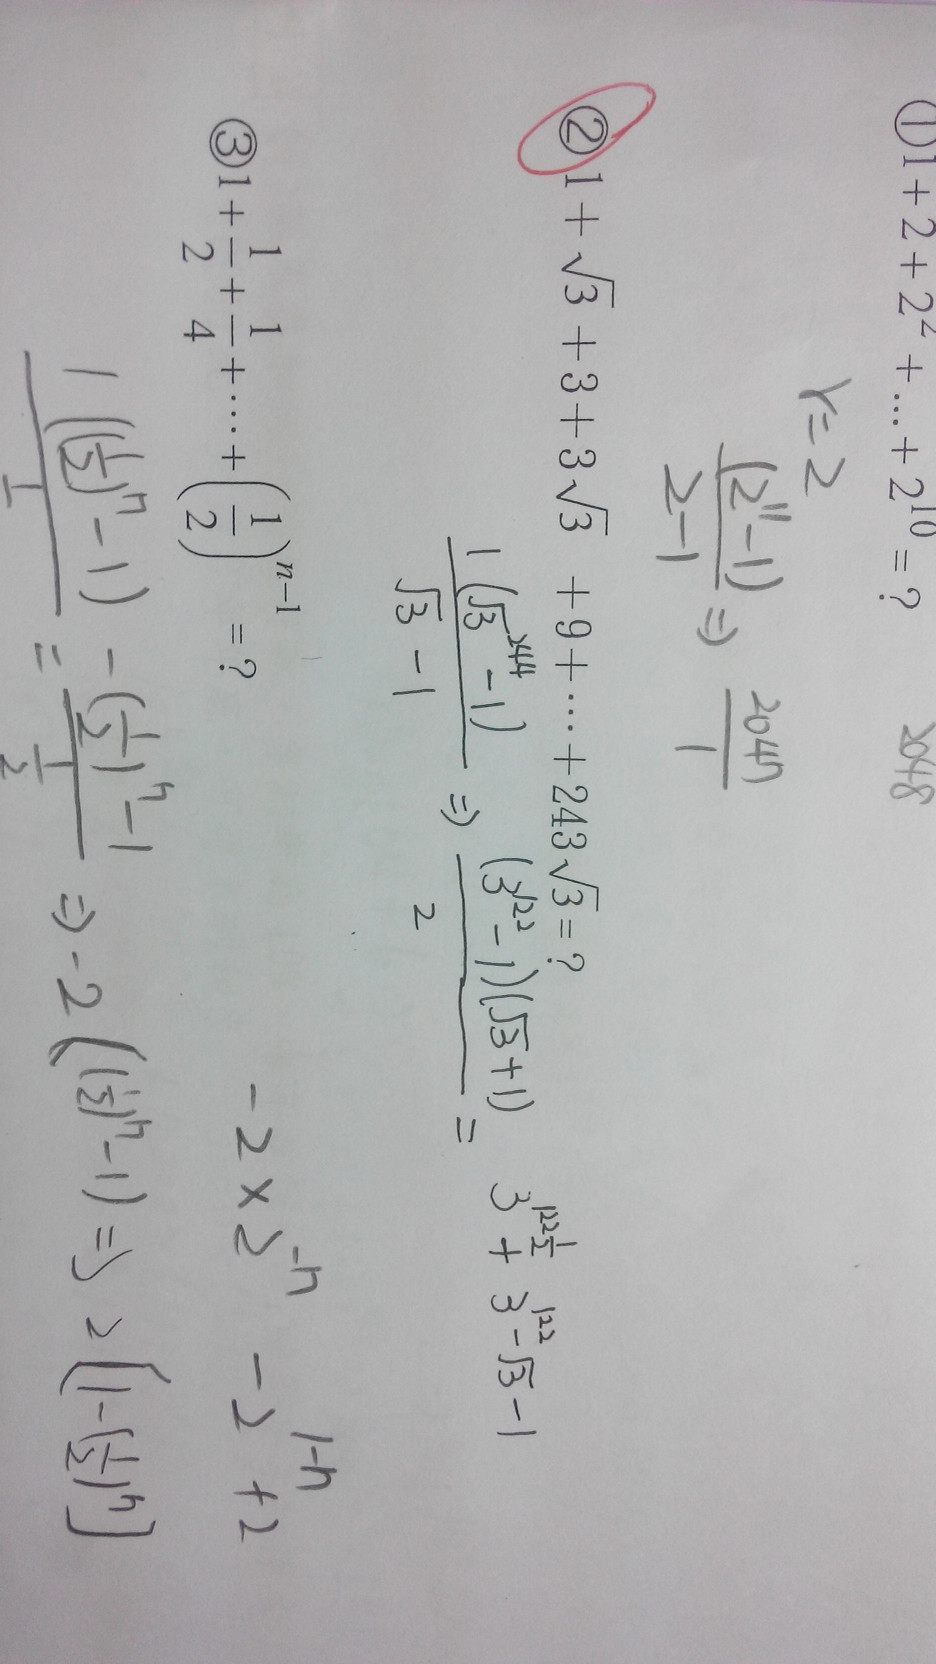 ①1+2+2²+…+2¹⁰=? 2048
r=2
(2¹¹-1)/(2-1) ⇒ 2047/1
②1+√3+3+3√3+9+…+243√3=?
1(√3²⁴⁴-1)/(√3-1) ⇒ (3¹²²-1)(√3+1)/2 = 3^(122 1/2)+3¹²²-√3-1
③1+1/2+1/4+…+(1/2)ⁿ⁻¹=?
-2×2⁻ⁿ -2¹⁻ⁿ+2
1((1/2)ⁿ-1) = -(1/2)ⁿ-1 / 1/2 ⇒ -2((1/2)ⁿ-1) ⇒ 2[1-(1/2)ⁿ]